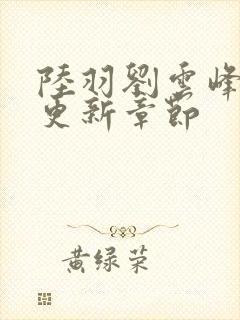 陸羽劉雲峰
更新章節
黄绿荣